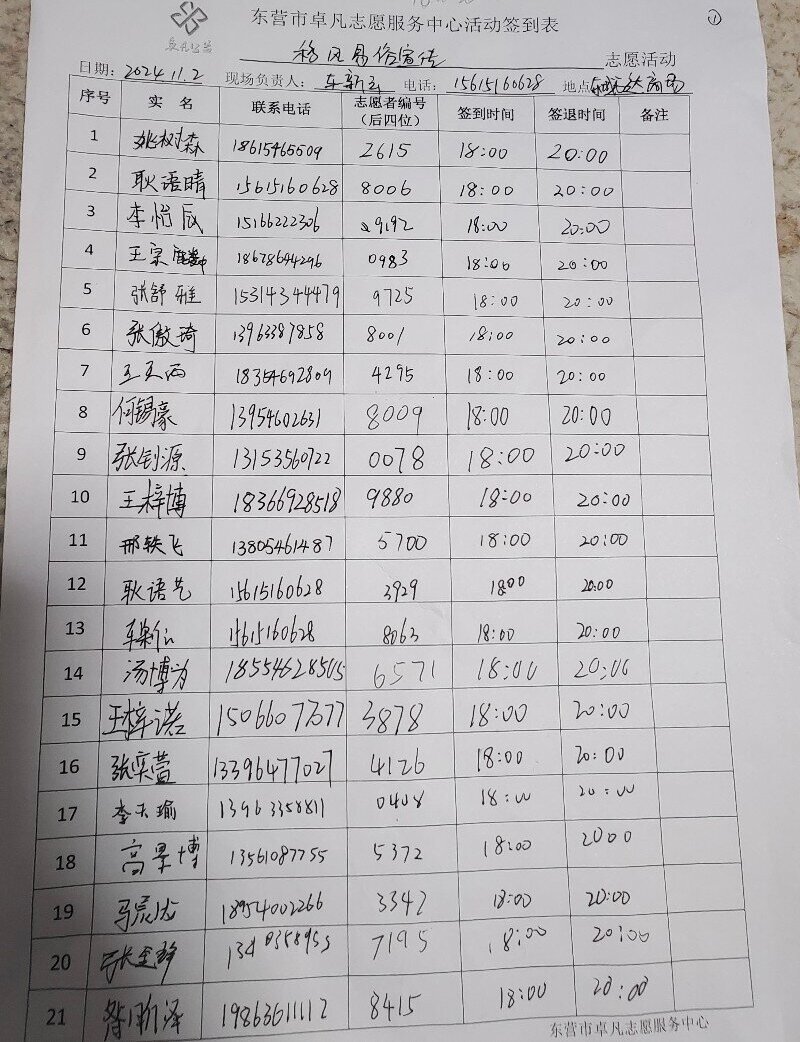 ①
卓凡公益
东营市卓凡志愿服务中心活动签到表
移风易俗宣传 志愿活动
日期：2024.11.2 现场负责人：车新 电话：15615160628 地点：
序号 实 名 联系电话 志愿者编号（后四位） 签到时间 签退时间 备注
1 姚树森 18615465509 2615 18:00 20:00
2 耿语晴 15615160628 8006 18:00 20:00
3 李怡辰 15166222306 9192 18:00 20:00
4 王宗 18678644296 0983 18:00 20:00
5 张舒雅 15314344479 9725 18:00 20:00
6 张傲琦 13963387858 8001 18:00 20:00
7 王 18354692809 4295 18:00 20:00
8 何锡豪 13954602631 8009 18:00 20:00
9 张钊源 13153560722 0078 18:00 20:00
10 王梓博 18366928518 9880 18:00 20:00
11 邢轶飞 13805461487 5700 18:00 20:00
12 耿语艺 15615160628 3929 18:00 20:00
13 15615160628 8063 18:00 20:00
14 汤博为 18554628505 6571 18:00 20:00
15 王梓诺 15066077377 3878 18:00 20:00
16 张奕萱 13396477027 4126 18:00 20:00
17 李天瑜 13963358811 0408 18:00 20:00
18 高景博 13561087755 5372 18:00 20:00
19 马 18954002266 3342 18:00 20:00
20 张 7195 18:00 20:00
21 泽 19863611112 8415 18:00 20:00
东营市卓凡志愿服务中心